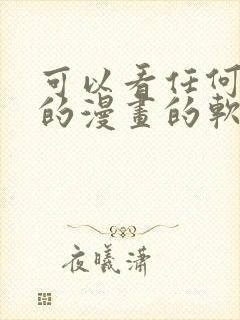 可以看任何
的漫畫的軟
夜曦潇